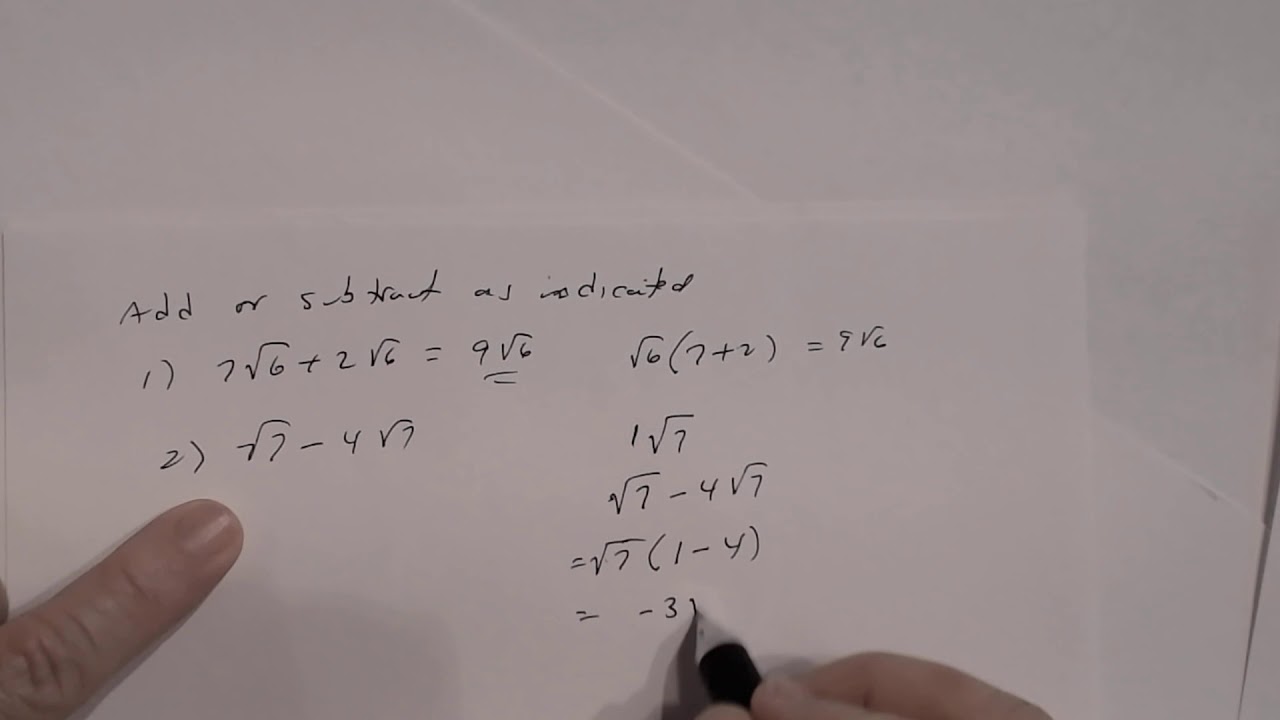 Add or subtract as indicated
1) 7√6 + 2√6 = 9√6 √6(7+2) = 9√6
2) √7 - 4√7
1√7
√7 - 4√7
= √7(1-4)
= -3